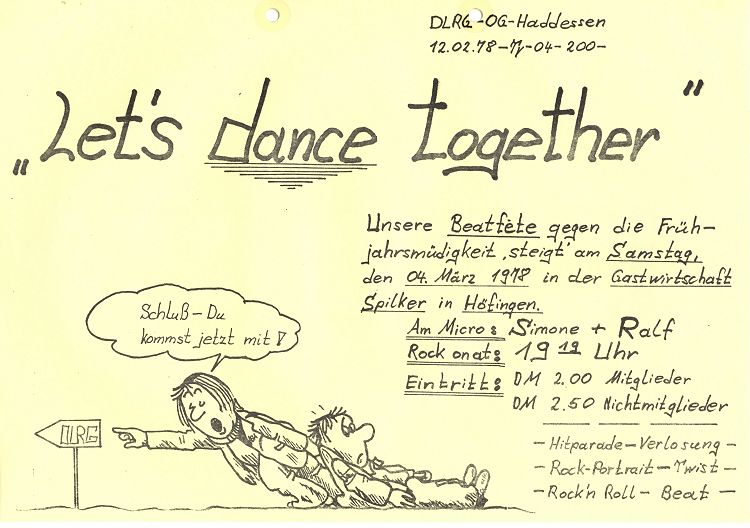 DLRG-OG-Haddessen
12.02.78-Y-04-200-
„Let's dance together"
Unsere Beatfête gegen die Früh-
jahrsmüdigkeit ‚steigt' am Samstag,
den 04. März 1978 in der Gastwirtschaft
Spilker in Höfingen.
Am Micro: Simone + Ralf
Rock onat: 19 19 Uhr
Eintritt: DM 2.00 Mitglieder
DM 2.50 Nichtmitglieder
- Hitparade - Verlosung -
- Rock-Portrait - Twist -
- Rock'n Roll - Beat -
Schluß - Du
kommst jetzt mit!
DLRG